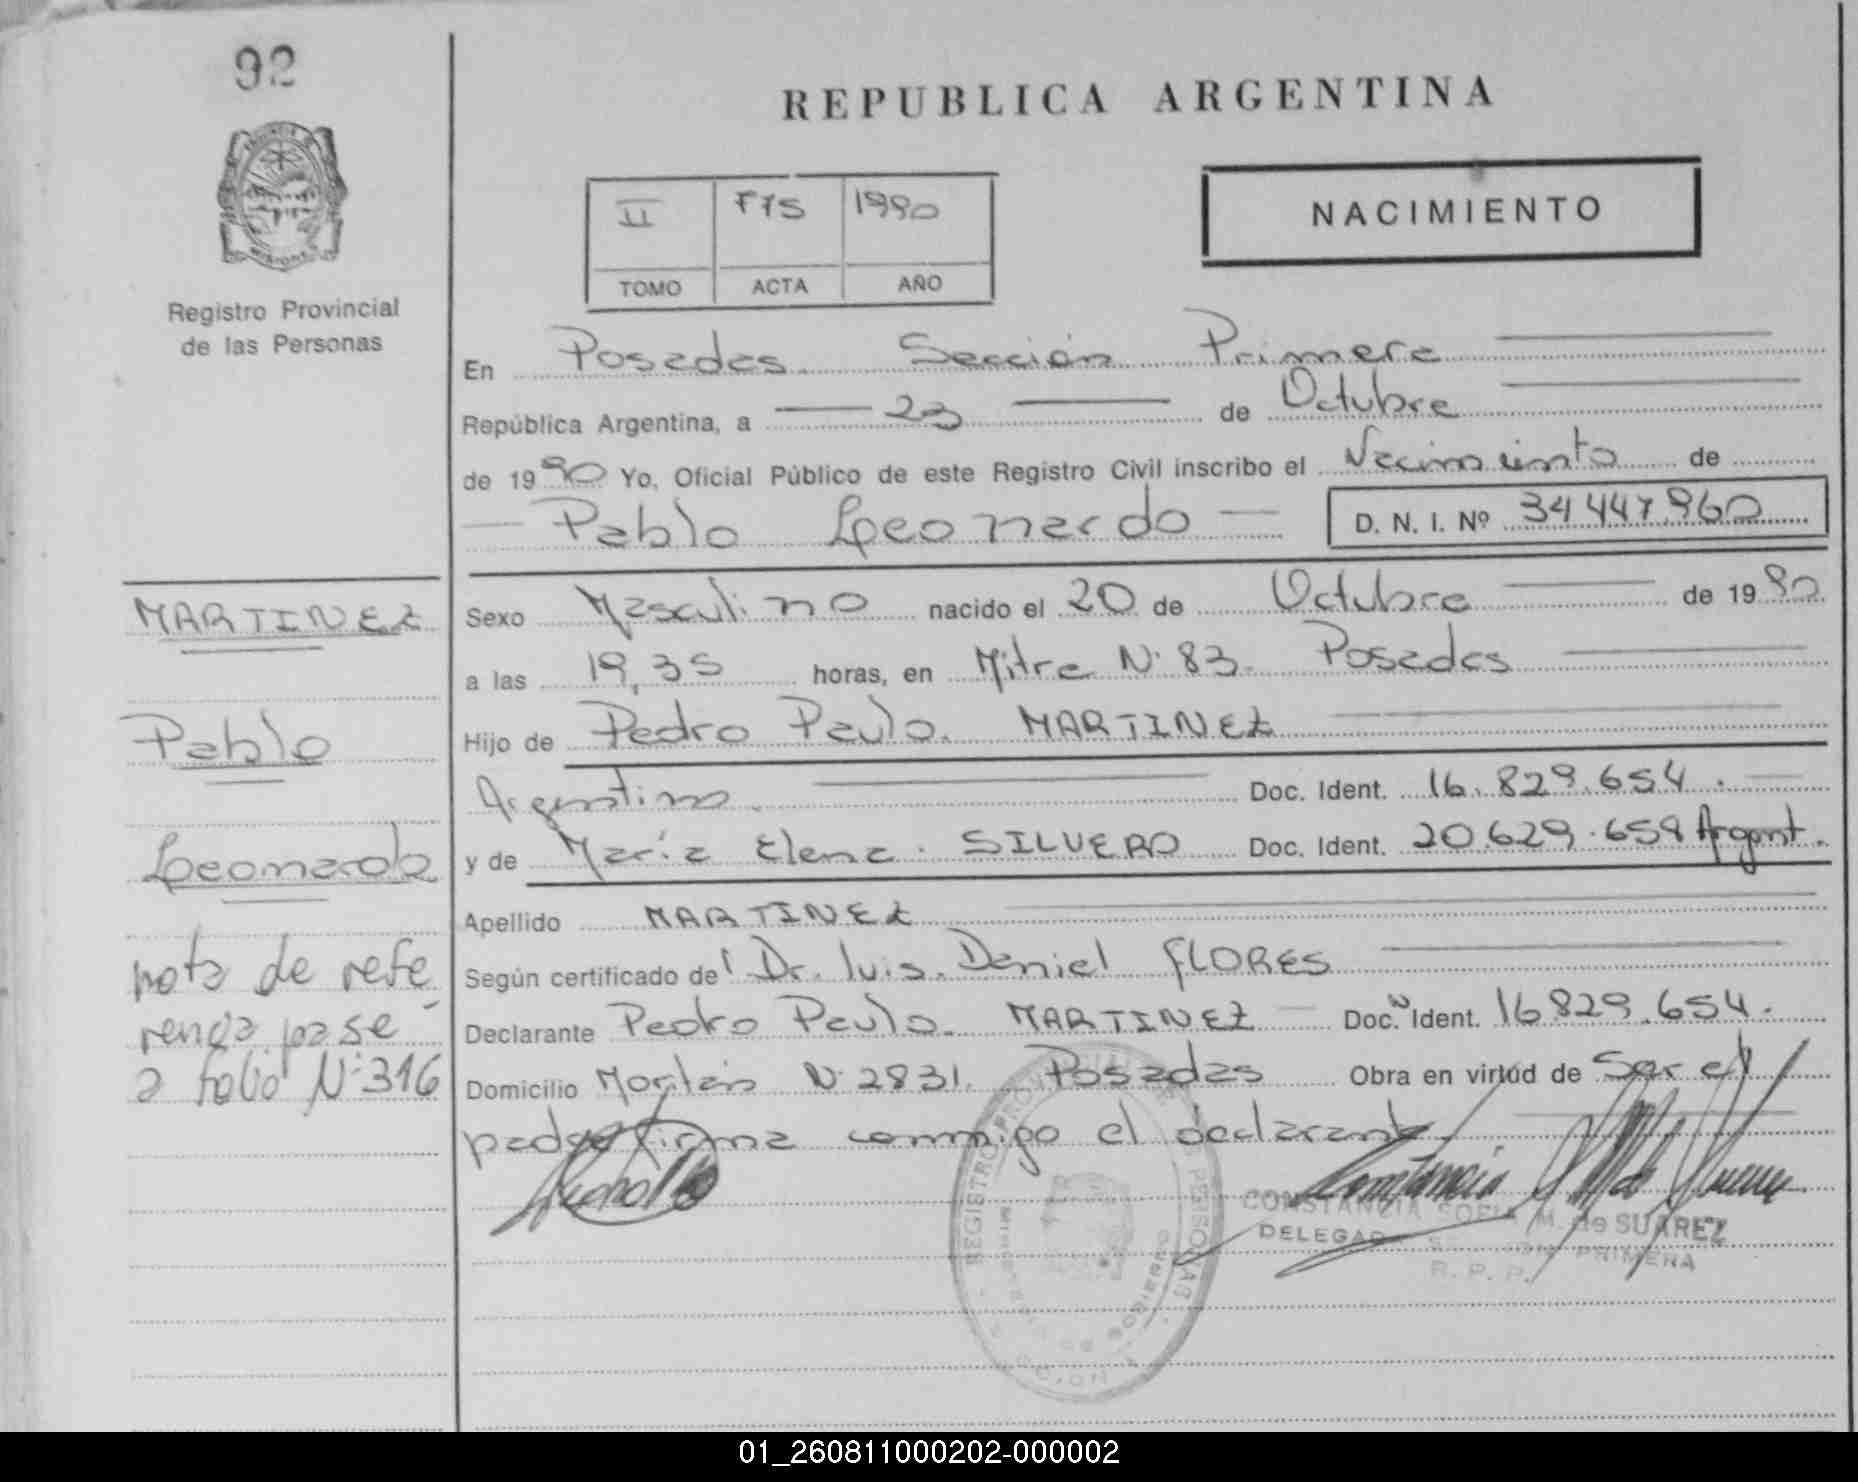 92
REPUBLICA ARGENTINA
NACIMIENTO
II 775 1990
TOMO ACTA AÑO
Registro Provincial
de las Personas
En Posadas Sección Primera
República Argentina, a 23 de Octubre
de 1990 Yo, Oficial Público de este Registro Civil inscribo el Nacimiento de
Pablo Leonardo D. N. I. Nº 34 447.960
MARTINEZ
Pablo
Leonardo
nota de refe
rencia pase
a folio Nº 316
Sexo Masculino nacido el 20 de Octubre de 1990
a las 19,35 horas, en Mitre Nº 83. Posadas
Hijo de Pedro Paulo MARTINEZ
Argentino. Doc. Ident. 16.829.654.
y de María Elena SILVERO Doc. Ident. 20.629.659 Argent.
Apellido MARTINEZ
Según certificado del Dr. Luis Daniel FLORES
Declarante Pedro Paulo MARTINEZ Doc. Ident. 16829.654.
Domicilio Nº 2831. Posadas Obra en virtud de Ser el
padre firma conmigo el declarante
CONSTANCIA SOFIA M. de SUAREZ
PRIMERA
R. P. P.
REGISTRO PROVINCIAL DE LAS PERSONAS
01_260811000202-000002